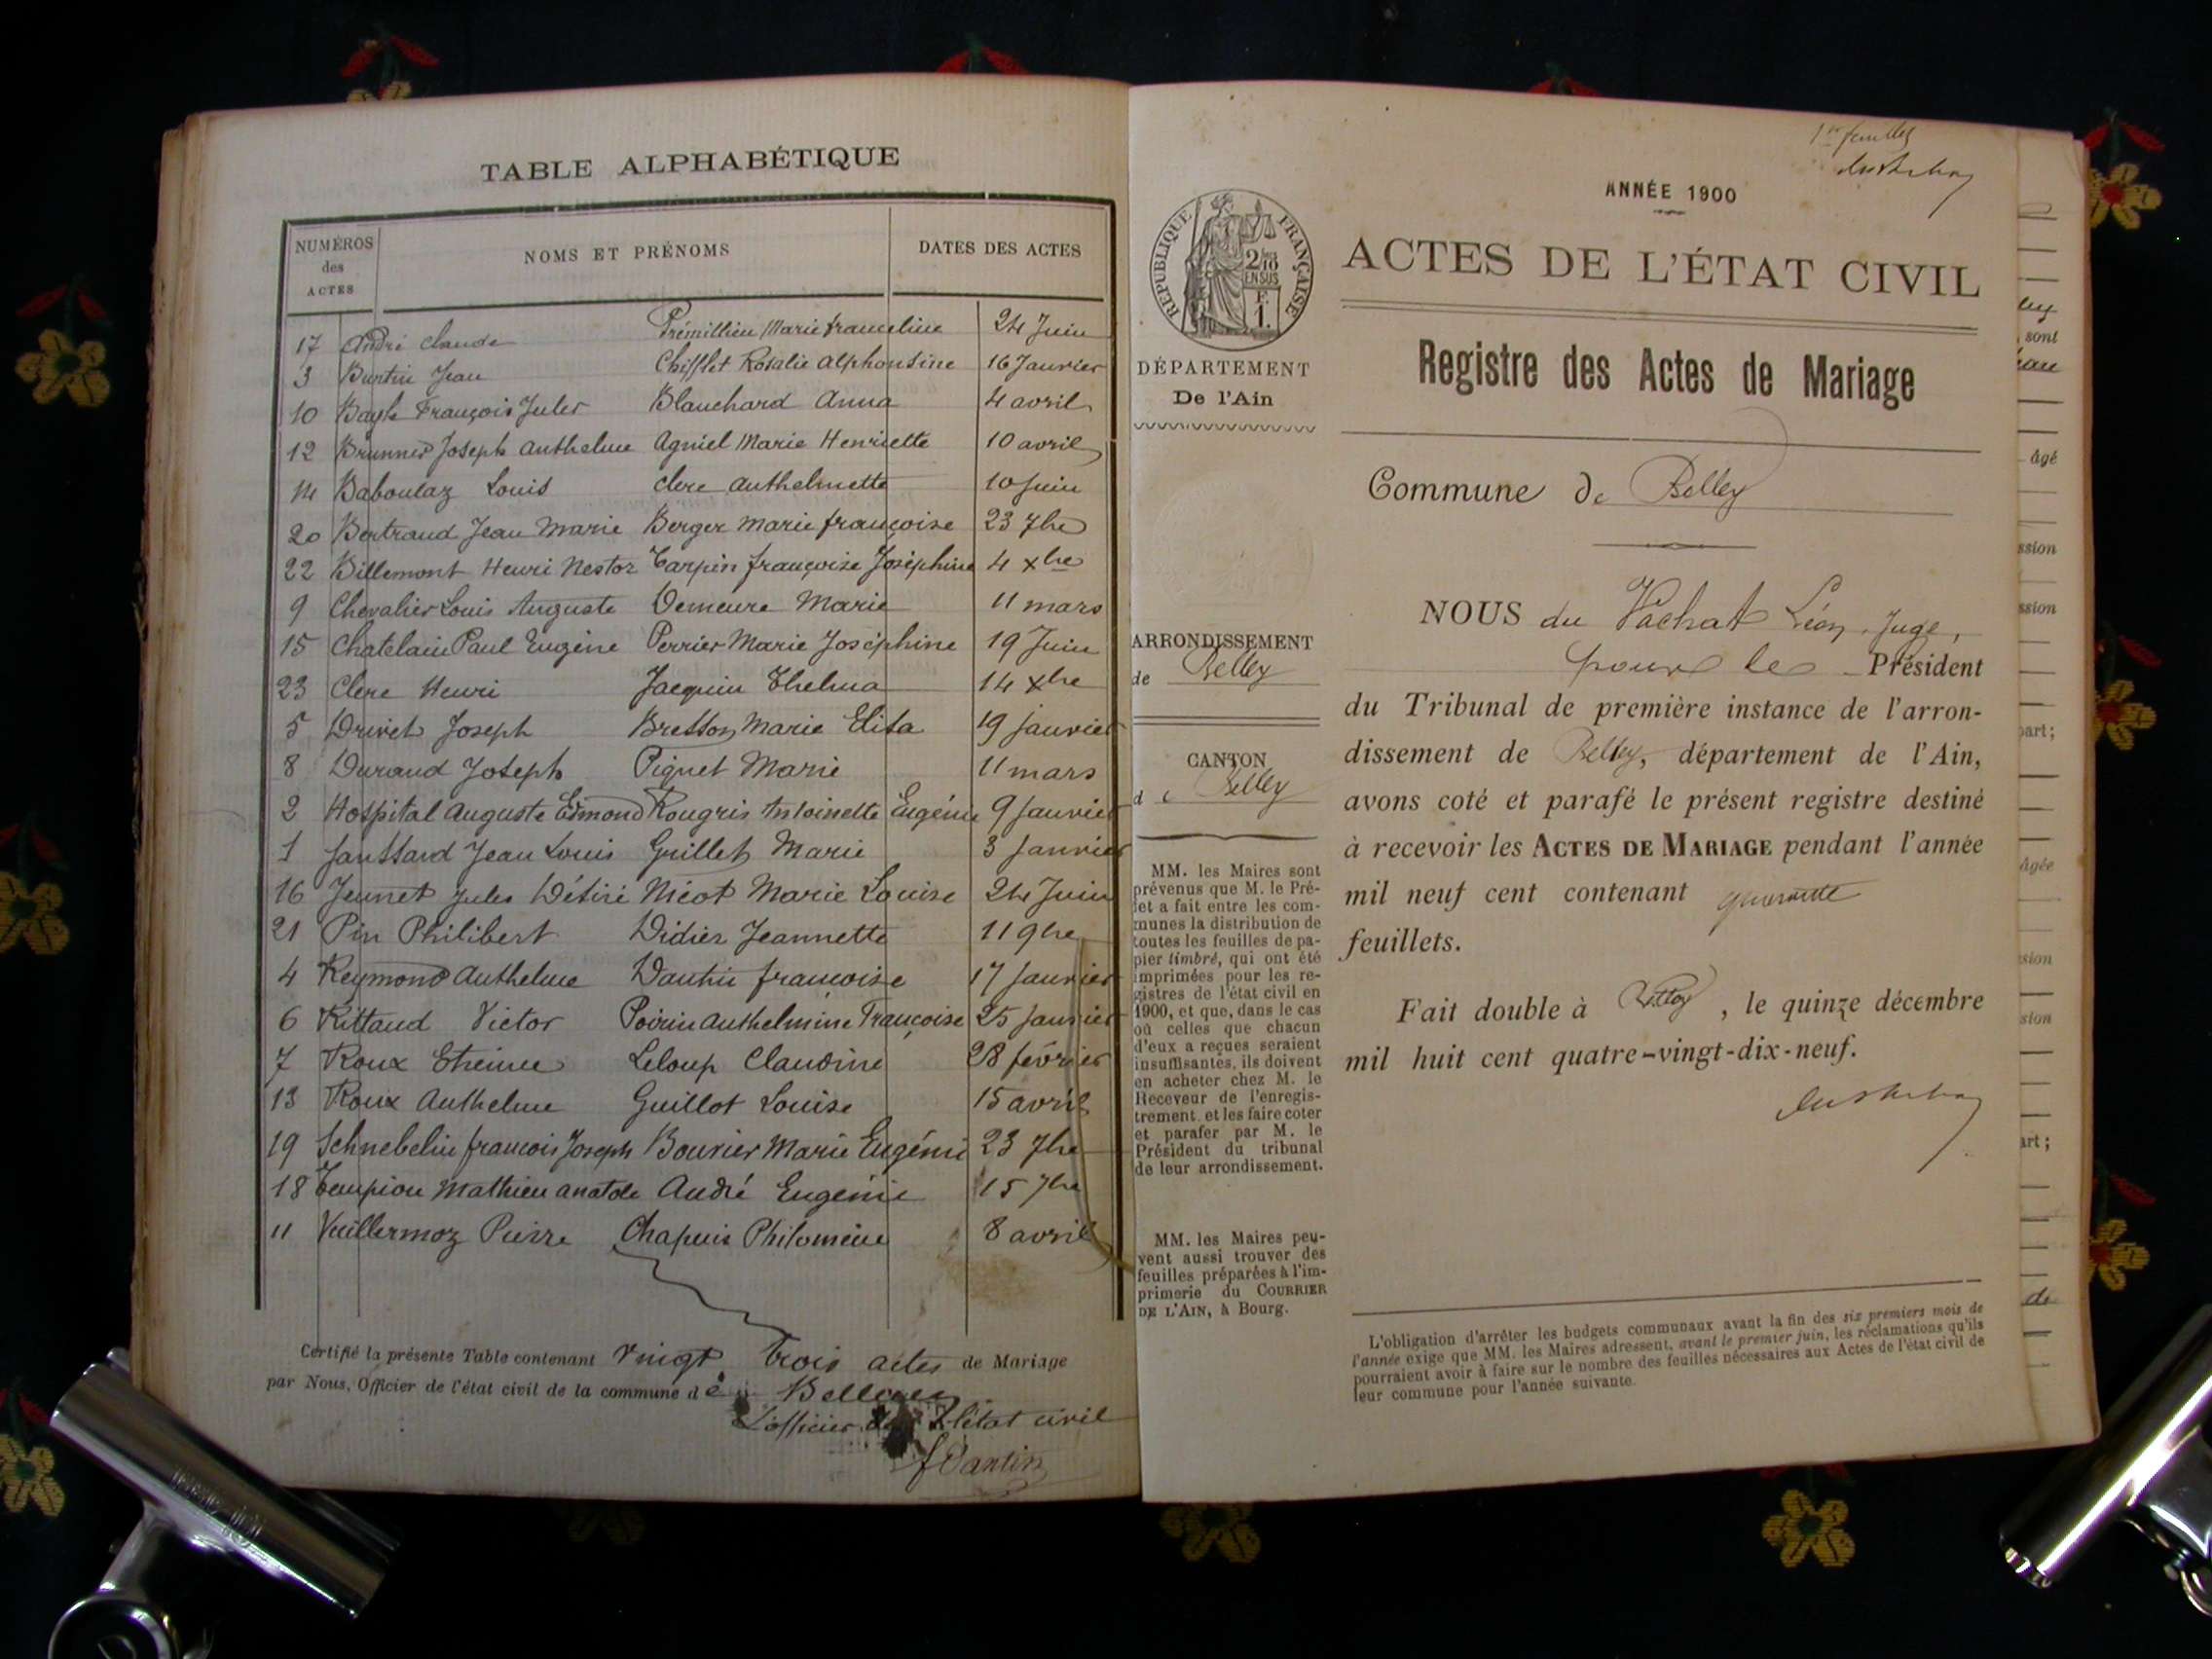 TABLE ALPHABÉTIQUE
NUMÉROS des ACTES NOMS ET PRÉNOMS DATES DES ACTES
17 André Claude Prémillieu Marie Franceline 24 Juin
3 Burtin Jean Chifflet Rosalie Alphonsine 16 Janvier
10 Bayle François Jules Blanchard Anna 4 avril
12 Brunner Joseph Anthelme Agniel Marie Henriette 10 avril
14 Baboulaz Louis Clerc Anthelmette 10 Juin
20 Bertrand Jean Marie Berger Marie françoise 23 7bre
22 Billemont Henri Nestor Tarpin françoise Joséphine 4 xbre
9 Chevalier Louis Auguste Demeure Marie 11 mars
15 Chatelain Paul Eugène Perrier Marie Joséphine 19 Juin
23 Clerc Henri Jacquin Thelma 14 xbre
5 Drivet Joseph Bresson Marie Elisa 19 janvier
8 Durand Joseph Piquet Marie 11 mars
2 Hospital Auguste Edmond Rougris Antoinette Eugénie 9 Janvier
1 Janssard Jean Louis Grillet Marie 3 Janvier
16 Jeunet Jules Désiré Nicot Marie Louise 24 Juin
21 Pin Philibert Didier Jeannette 11 9bre
4 Reymond Anthelme Dantin francoise 17 Janvier
6 Rittaud Victor Poirin Anthelmine Françoise 25 Janvier
7 Roux Etienne Leloup Claudine 28 février
13 Roux Anthelme Guillot Louise 15 avril
19 Schnebelin francois Joseph Bouvier Marie Eugénie 23 7bre
18 Tempion Mathieu anatole André Eugénie 15 7bre
11 Vuillermoz Pierre Chapuis Philomène 8 avril
Certifié la présente Table contenant vingt trois actes de Mariage
par Nous, Officier de l'état civil de la commune de Belley
L'officier de l'état civil
Dantin
1er feuillet
ANNÉE 1900
RÉPUBLIQUE FRANÇAISE
2/10
EN SUS
F.
1.
ACTES DE L'ÉTAT CIVIL
DÉPARTEMENT
De l'Ain
Registre des Actes de Mariage
Commune de Belley
ARRONDISSEMENT
de Belley
CANTON
de Belley
MM. les Maires sont
prévenus que M. le Pré-
fet a fait entre les com-
munes la distribution de
toutes les feuilles de pa-
pier timbré, qui ont été
imprimées pour les re-
gistres de l'état civil en
1900, et que, dans le cas
où celles que chacun
d'eux a reçues seraient
insuffisantes, ils doivent
en acheter chez M. le
Receveur de l'enregis-
trement et les faire coter
et parafer par M. le
Président du tribunal
de leur arrondissement.
MM. les Maires peu-
vent aussi trouver des
feuilles préparées à l'im-
primerie du COURRIER
DE L'AIN, à Bourg.
NOUS du Vachat Léon, Juge,
pour le Président
du Tribunal de première instance de l'arron-
dissement de Belley, département de l'Ain,
avons coté et parafé le présent registre destiné
à recevoir les ACTES DE MARIAGE pendant l'année
mil neuf cent contenant quarante
feuillets.
Fait double à Belley, le quinze décembre
mil huit cent quatre-vingt-dix-neuf.
L'obligation d'arrêter les budgets communaux avant la fin des six premiers mois de
l'année exige que MM. les Maires adressent, avant le premier juin, les réclamations qu'ils
pourraient avoir à faire sur le nombre des feuilles nécessaires aux Actes de l'état civil de
leur commune pour l'année suivante.
sont
âgé
ssion
ssion
part;
âgée
sion
sion
art;
de